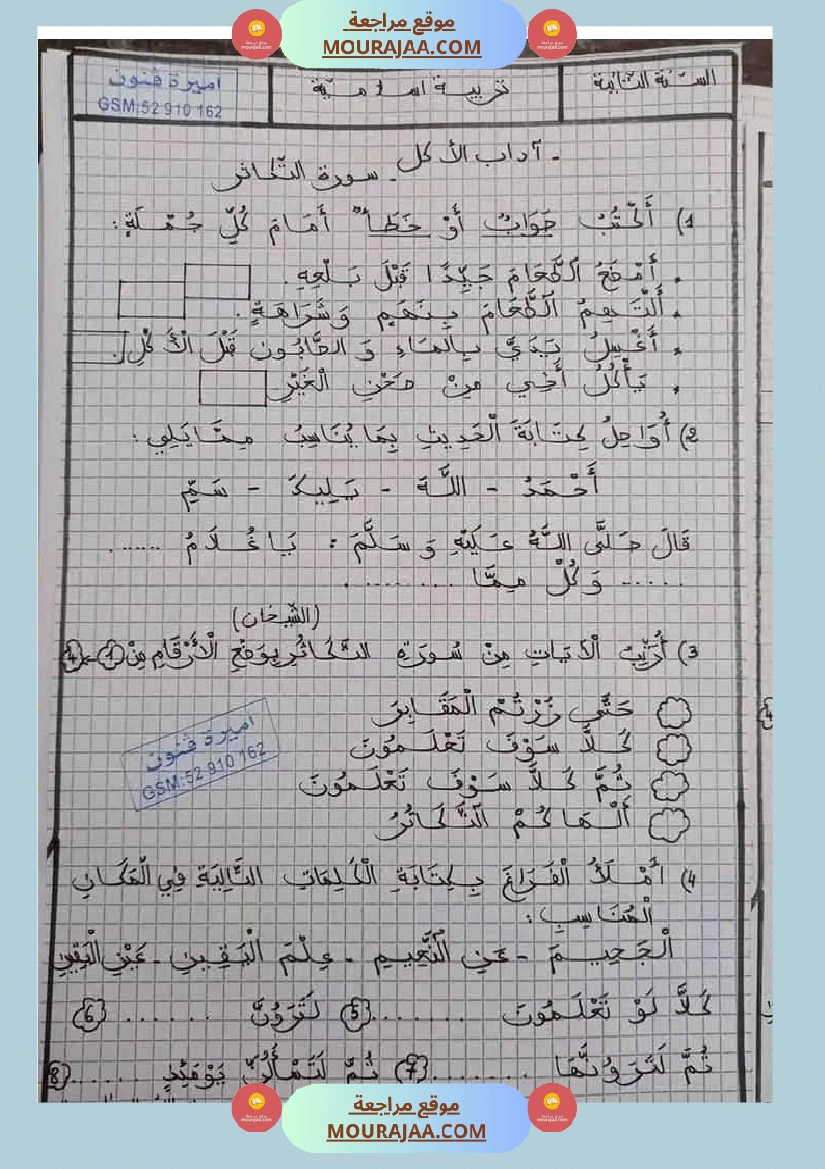 موقع مراجعة
MOURAJAA.COM
السنة الثانية
تربية اسلامية
اميرة فنون
GSM:52 910 162
. آداب الأكل
. سورة التكاثر
1) أَكْتُبُ جَوَابٌ أَوْ خَطَأٌ أَمَامَ كُلِّ جُمْلَةٍ:
. أَمْضَغُ الطَّعَامَ جَيِّدًا قَبْلَ بَلْعِهِ.
. أَلْتَهِمُ الطَّعَامَ بِنَهَمٍ وَشَرَاهَةٍ.
. أَغْسِلُ يَدَيَّ بِالمَاءِ وَ الصَّابُونِ قَبْلَ الْأَكْلِ.
. يَأْكُلُ أَخِي مِنْ صَحْنِ الْغَيْرِ
2) أُوَاصِلُ كِتَابَةَ الْحَدِيثِ بِمَا يُنَاسِبُ مِمَّا يَلِي:
أَحْمَدُ - اللَّهَ - يَلِيكَ - سَمِّ
قَالَ صَلَّى اللَّهُ عَلَيْهِ وَسَلَّمَ : يَا غُلَامُ .......
...... وَكُلْ مِمَّا ..........
(الشيخان)
3) أُرَتِّبُ الْآيَاتِ مِنْ سُورَةِ التَّكَاثُرِ بِوَضْعِ الْأَرْقَامِ مِنْ 1 - 4
حَتَّى زُرْتُمْ الْمَقَابِرَ
كَلَّا سَوْفَ تَعْلَمُونَ
ثُمَّ كَلَّا سَوْفَ تَعْلَمُونَ
أَلْهَاكُمْ التَّكَاثُرُ
اميرة فنون
GSM:52 910 162
4) أَمْلَأُ الْفَرَاغَ بِكِتَابَةِ الْكَلِمَاتِ التَّالِيَةِ فِي الْمَكَانِ
الْمُنَاسِبِ:
الْجَحِيمَ - عَنِ النَّعِيمِ - عِلْمَ الْيَقِينِ - عَيْنَ الْيَقِينِ
كَلَّا لَوْ تَعْلَمُونَ ........ (5) لَتَرَوُنَّ ...... (6)
ثُمَّ لَتَرَوُنَّهَا ........ (7) ثُمَّ لَتُسْأَلُنَّ يَوْمَئِذٍ ...... (8)
موقع مراجعة
MOURAJAA.COM